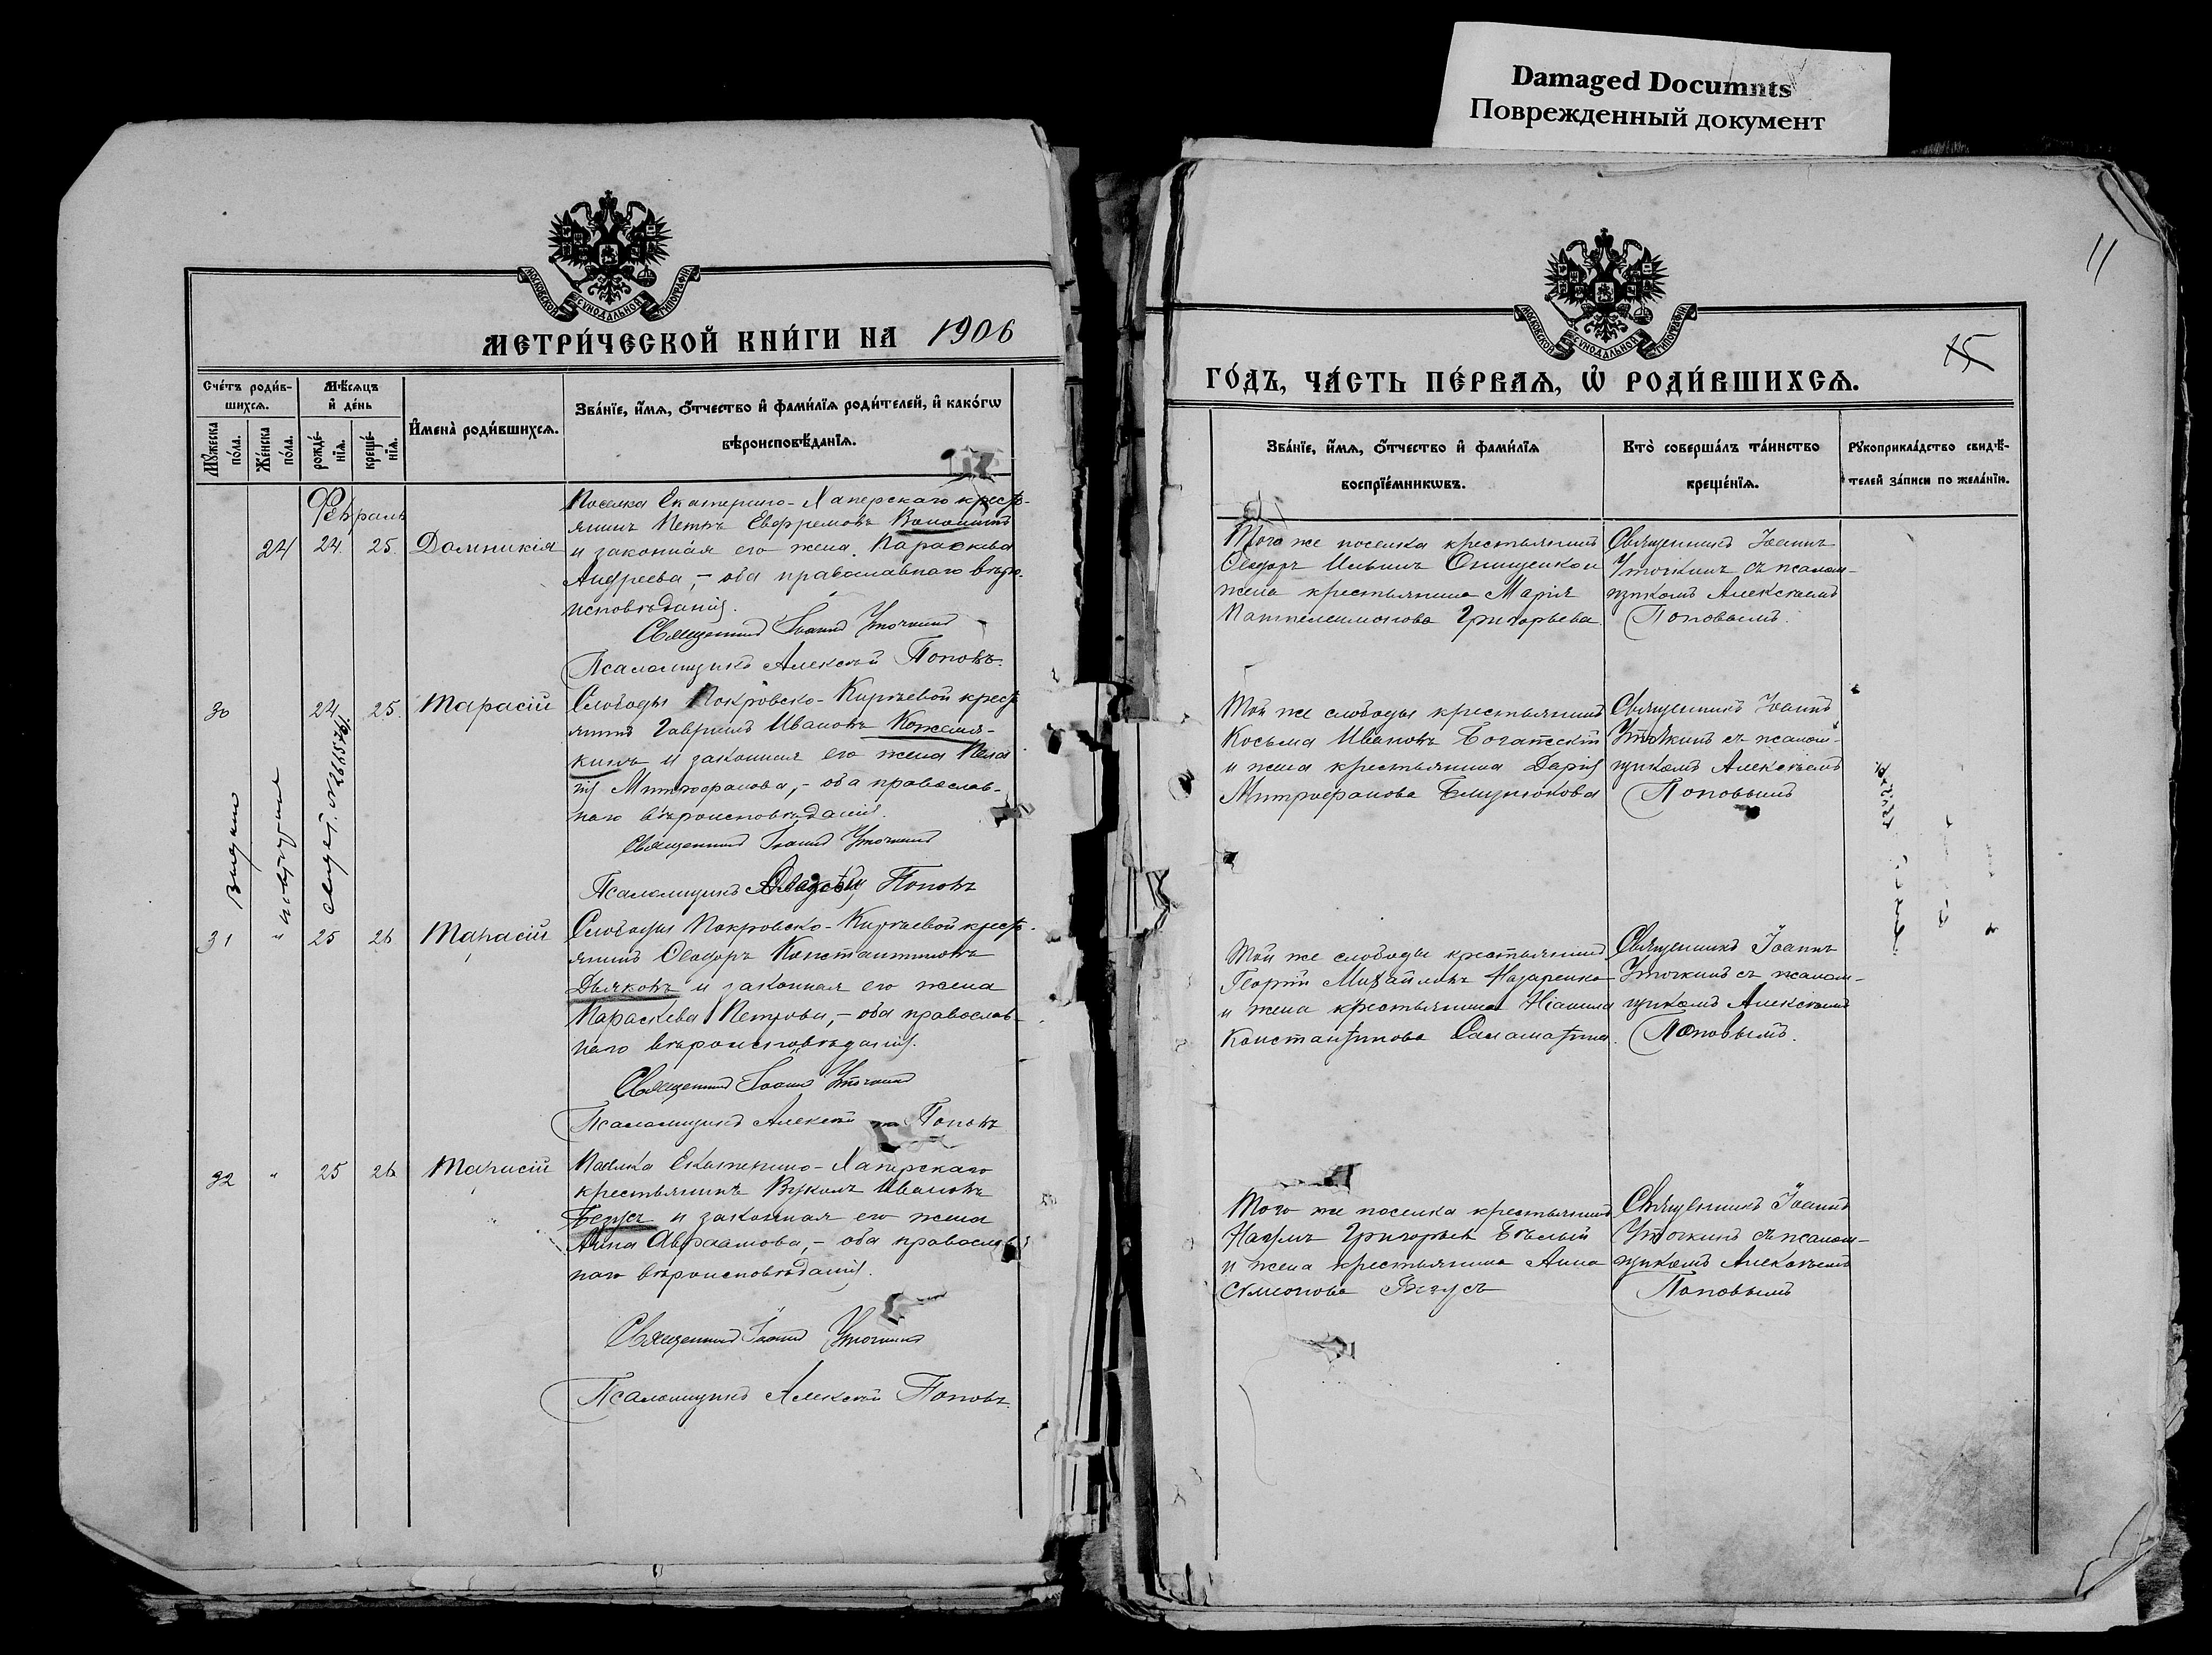 Damaged Documnts
Поврежденный документ
МОСКОВСКОЙ СѴНОДАЛЬНОЙ ТИПОГРАФІИ
МЕТРИ́ЧЕСКОЙ КНИ́ГИ НА 1906
Сче́тъ роди́в-
шихсѧ.
Мꙋ́жеска по́ла.
Же́нска по́ла.
Мѣ́сѧцъ
и҆ де́нь
рожде́-
нїѧ.
креще́-
нїѧ.
И҆мена̀ роди́вшихсѧ.
Зва́нїе, и҆́мѧ, ѻ҆́тчество и҆ фами́лїѧ роди́телей, и҆ како́гѡ
вѣроисповѣ́данїѧ.
Февраль
24 24. 25. Домникія
Поселка Екатерино-Хаперскаго кресть-
янинъ Петръ Евфремовъ
и законная его жена Параскева
Андреева, – оба православнаго вѣро-
исповѣданія.
Священникъ Іоаннъ Уточкинъ
Псаломщикъ Алексѣй Поповъ.
30 24 25. Тарасій
Слободы Покровско-Киреевой кресть-
янинъ Гавріилъ Ивановъ Кожемя-
кинъ и законная его жена Пела
Митрофанова, – оба православ-
наго вѣроисповѣданія.
Священникъ Іоаннъ Уточкинъ
Псаломщикъ Алексѣй Поповъ
31 " 25 26 Тарасій
Слободы Покровско-Киреевой кресть-
янинъ Ѳеодоръ Константиновъ
Дьяковъ и законная его жена
Параскева Петрова, – оба православ-
наго вѣроисповѣданія.
Священникъ Іоаннъ Уточкинъ
Псаломщикъ Алексѣй Поповъ
32 " 25 26 Тарасій
Поселка Екатерино-Хаперскаго
крестьянинъ Вуколъ Ивановъ
Безусъ и законная его жена
Анна Авраамова, – оба православ-
наго вѣроисповѣданія.
Священникъ Іоаннъ Уточкинъ
Псаломщикъ Алексѣй Поповъ.
11
15
МОСКОВСКОЙ СѴНОДАЛЬНОЙ ТИПОГРАФІИ
ГО́ДЪ, ЧА́СТЬ ПЕ́РВАѦ, Ѽ РОДИ́ВШИХСѦ.
Зва́нїе, и҆́мѧ, ѻ҆́тчество и҆ фами́лїѧ
воспрїе́мникѡвъ.
Кто̀ соверша́лъ та́инство
креще́нїѧ.
Рꙋкоприкла́дство свидѣ́-
телей за́писи по жела́нїю.
Того же поселка крестьянинъ
Ѳеодоръ Ильинъ Онищенко и
жена крестьянина Марія
Пантелеимонова Григорьева.
Священникъ Іоаннъ
Уточкинъ съ псалом-
щикомъ Алексѣемъ
Поповымъ.
Той же слободы крестьянинъ
Косьма Ивановъ Богатскій
и жена крестьянина Дарія
Митрофанова
Священникъ Іоаннъ
Уточкинъ съ псалом-
щикомъ Алексѣемъ
Поповымъ
Той же слободы крестьянинъ
Георгій Михайловъ Назаренко
и жена крестьянина
Константинова Саламатина.
Священникъ Іоаннъ
Уточкинъ съ псалом-
щикомъ Алексѣемъ
Поповымъ.
Того же поселка крестьянинъ
Наумъ Григорьевъ Бѣлый
и жена крестьянина Анна
Симонова Безусъ
Священникъ Іоаннъ
Уточкинъ съ псалом-
щикомъ Алексѣемъ
Поповымъ